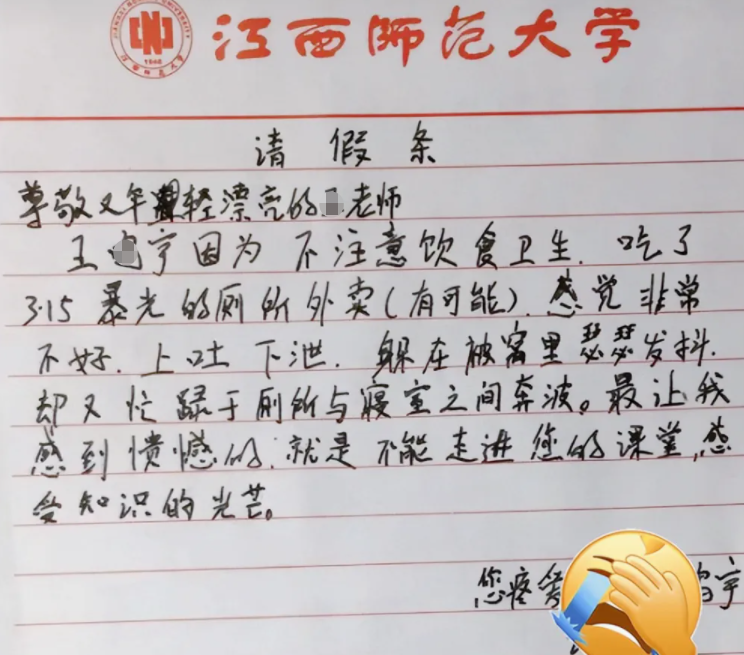 江西师范大学
请假条
尊敬又年轻漂亮的老师
王宇因为不注意饮食卫生.吃了
3·15暴光的厕所外卖(有可能).感觉非常
不好.上吐下泄.躲在被窝里瑟瑟发抖.
却又忙碌于厕所与寝室之间奔波。最让我
感到愦憾的.就是不能走进您的课堂,感
受知识的光芒。
您疼 宇